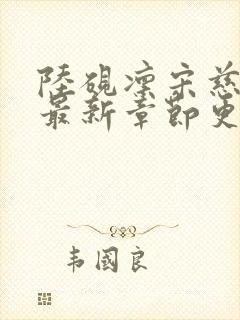 陸硯凛宋慈
最新章節更
韦國良